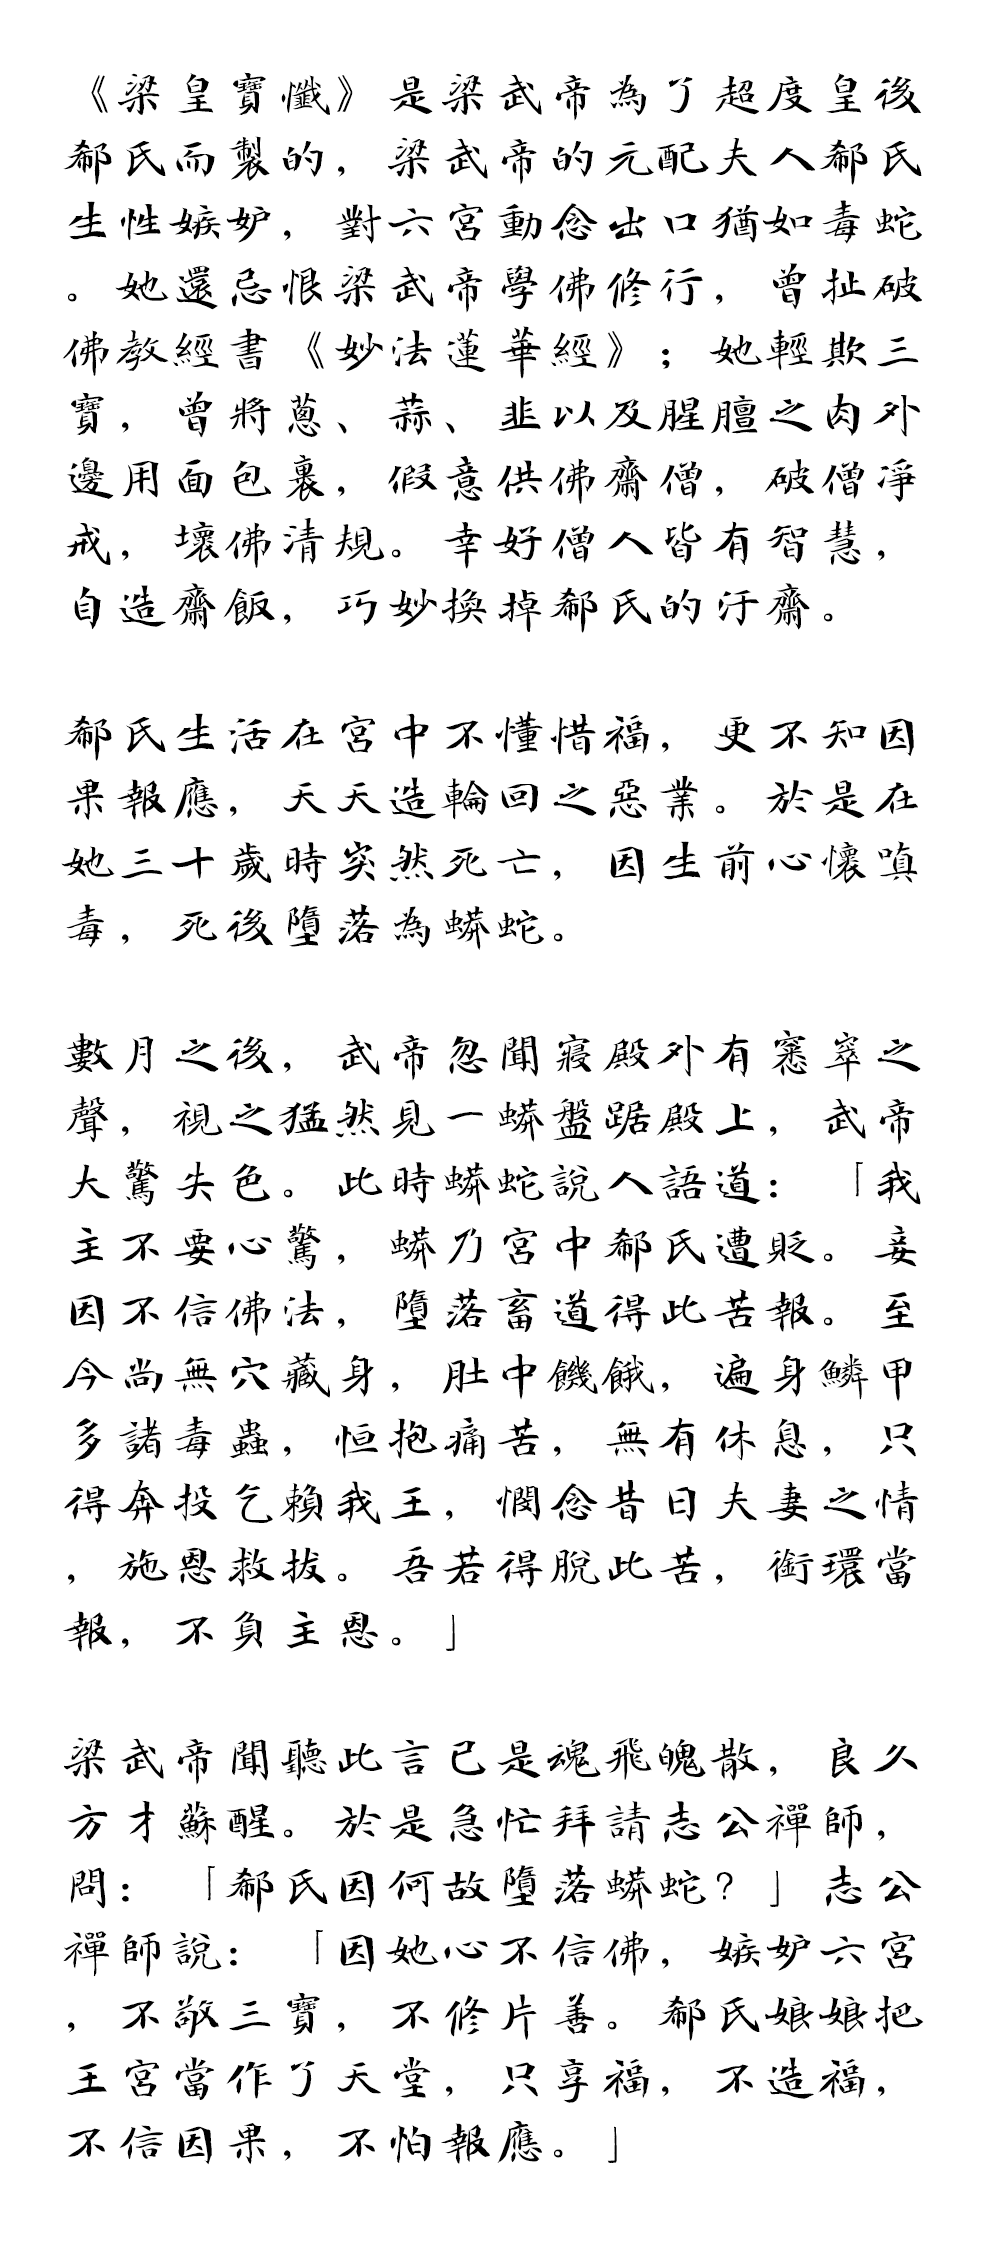 《梁皇寶懺》是梁武帝為了超度皇後
郗氏而製的，梁武帝的元配夫人郗氏
生性嫉妒，對六宮動念出口猶如毒蛇
。她還忌恨梁武帝學佛修行，曾扯破
佛教經書《妙法蓮華經》；她輕欺三
寶，曾將蔥、蒜、韭以及腥膻之肉外
邊用面包裹，假意供佛齋僧，破僧凈
戒，壞佛清規。幸好僧人皆有智慧，
自造齋飯，巧妙換掉郗氏的汙齋。
郗氏生活在宮中不懂惜福，更不知因
果報應，天天造輪回之惡業。於是在
她三十歲時突然死亡，因生前心懷嗔
毒，死後墮落為蟒蛇。
數月之後，武帝忽聞寢殿外有窸窣之
聲，視之猛然見一蟒盤踞殿上，武帝
大驚失色。此時蟒蛇說人語道：「我
主不要心驚，蟒乃宮中郗氏遭貶。妾
因不信佛法，墮落畜道得此苦報。至
今尚無穴藏身，肚中饑餓，遍身鱗甲
多諸毒蟲，恒抱痛苦，無有休息，只
得奔投乞賴我王，憫念昔日夫妻之情
，施恩救拔。吾若得脫此苦，銜環當
報，不負主恩。」
梁武帝聞聽此言已是魂飛魄散，良久
方才蘇醒。於是急忙拜請志公禪師，
問：「郗氏因何故墮落蟒蛇？」志公
禪師說：「因她心不信佛，嫉妒六宮
，不敬三寶，不修片善。郗氏娘娘把
王宮當作了天堂，只享福，不造福，
不信因果，不怕報應。」